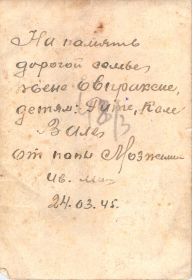 На память
дорогой семье
жене Евпраксие,
детям: Рите, Коле
Вале
от папы Мозжилин
Ив. Мих
24.03.45.